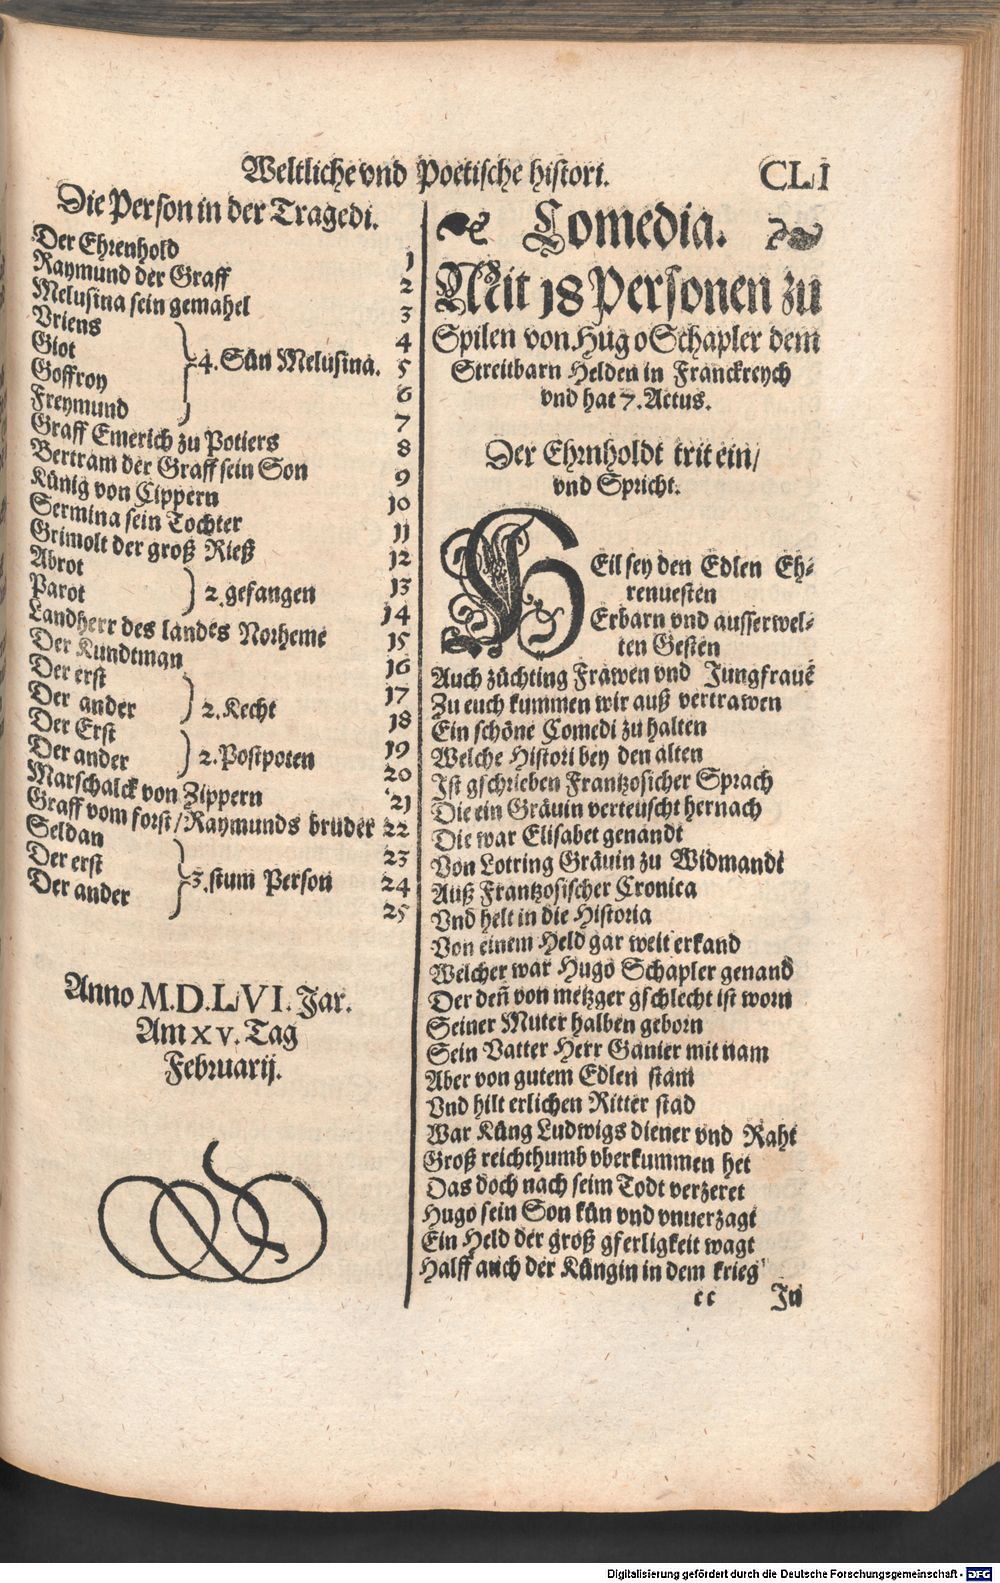 Weltliche vnd Poetische histori. CLI
Die Person in der Tragedi.
Der Ehrenhold 1
Raymund der Graff 2
Melusina sein gemahel 3
Vriens 4
Giot 5
Goffroy 6
Freymund 7
4. Sün Melusina.
Graff Emerich zu Potiers 8
Bertram der Graff sein Son 9
Künig von Cippern 10
Sermina sein Tochter 11
Grimolt der groß Rieß 12
Abrot 13
Parot 14
2 gefangen
Landherr des landes Norheme 15
Der Kundtman 16
Der erst 17
Der ander 18
2. Kecht
Der Erst 19
Der ander 20
2. Postpoten
Marschalck von Zippern 21
Graff vom forst/ Raymunds bruder 22
Seldan 23
Der erst 24
Der ander 25
3. stum Person
Anno M.D.LVI. Jar.
Am XV. Tag
Februarij.
Comedia.
Mit 18 Personen zu
Spilen von Hugo Schapler dem
Streitbarn Helden in Franckreych
vnd hat 7. Actus.
Der Ehrnholdt trit ein/
vnd Spricht.
HEil sey den Edlen Eh-
renuesten
Erbarn vnd ausserwel-
ten Gesten
Auch züchting Frawen vnd Jungfrauē
Zu euch kummen wir auß vertrawen
Ein schöne Comedi zu halten
Welche Histori bey den alten
Ist gschrieben Frantzosicher Sprach
Die ein Gräuin verteuscht hernach
Die war Elisabet genandt
Von Lotring Gräuin zu Widmandt
Auß Frantzosischer Cronica
Vnd helt in die Historia
Von einem Held gar weit erkand
Welcher war Hugo Schapler genand
Der deñ von metzger gschlecht ist worn
Seiner Muter halben geborn
Sein Vatter Herr Ganier mit nam
Aber von gutem Edlen stam
Vnd hilt erlichen Ritter stad
War Küng Ludwigs diener vnd Raht
Groß reichthumb vberkummen het
Das doch nach seim Todt verzeret
Hugo sein Son kün vnd vnuerzagt
Ein Held der groß gferligkeit wagt
Halff auch der Küngin in dem krieg
cc In
Digitalisierung gefördert durch die Deutsche Forschungsgemeinschaft - DFG